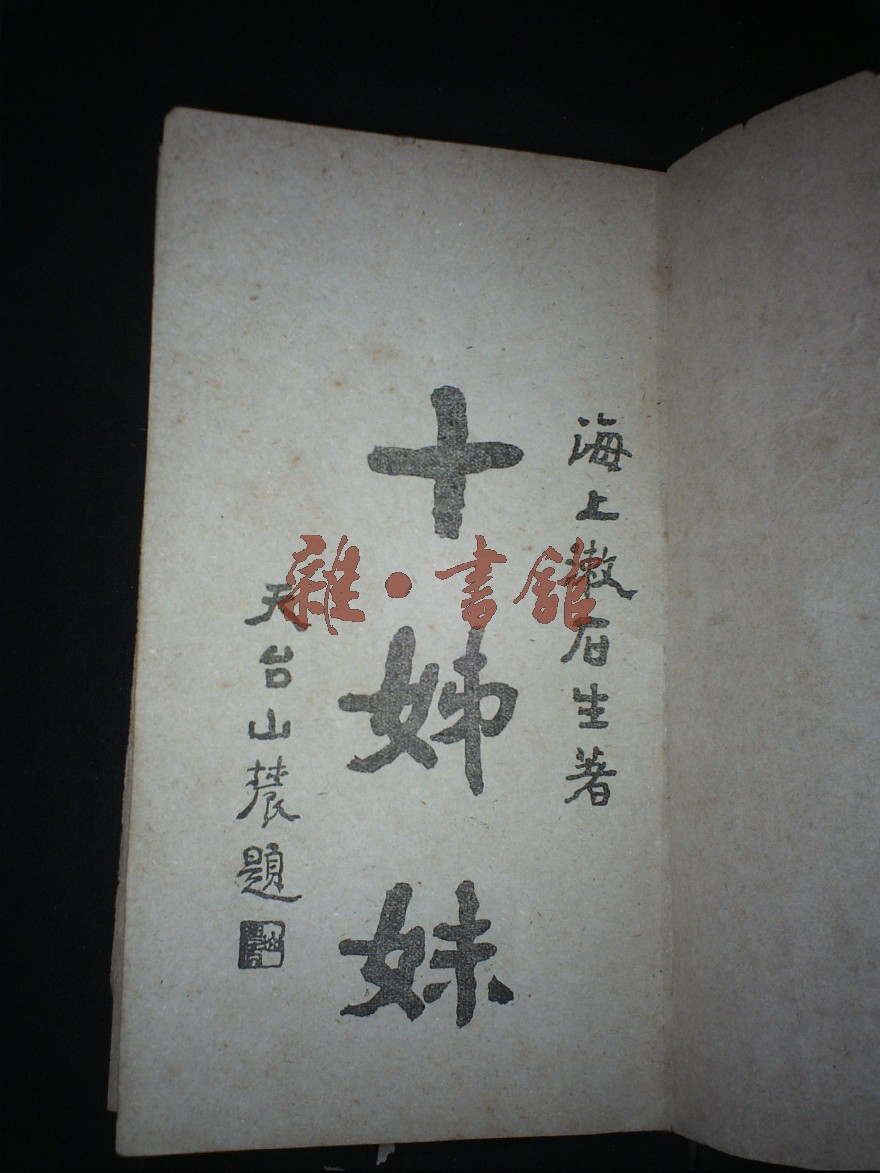 海上漱石生著
十姊妹
天台山農題
雜·書館